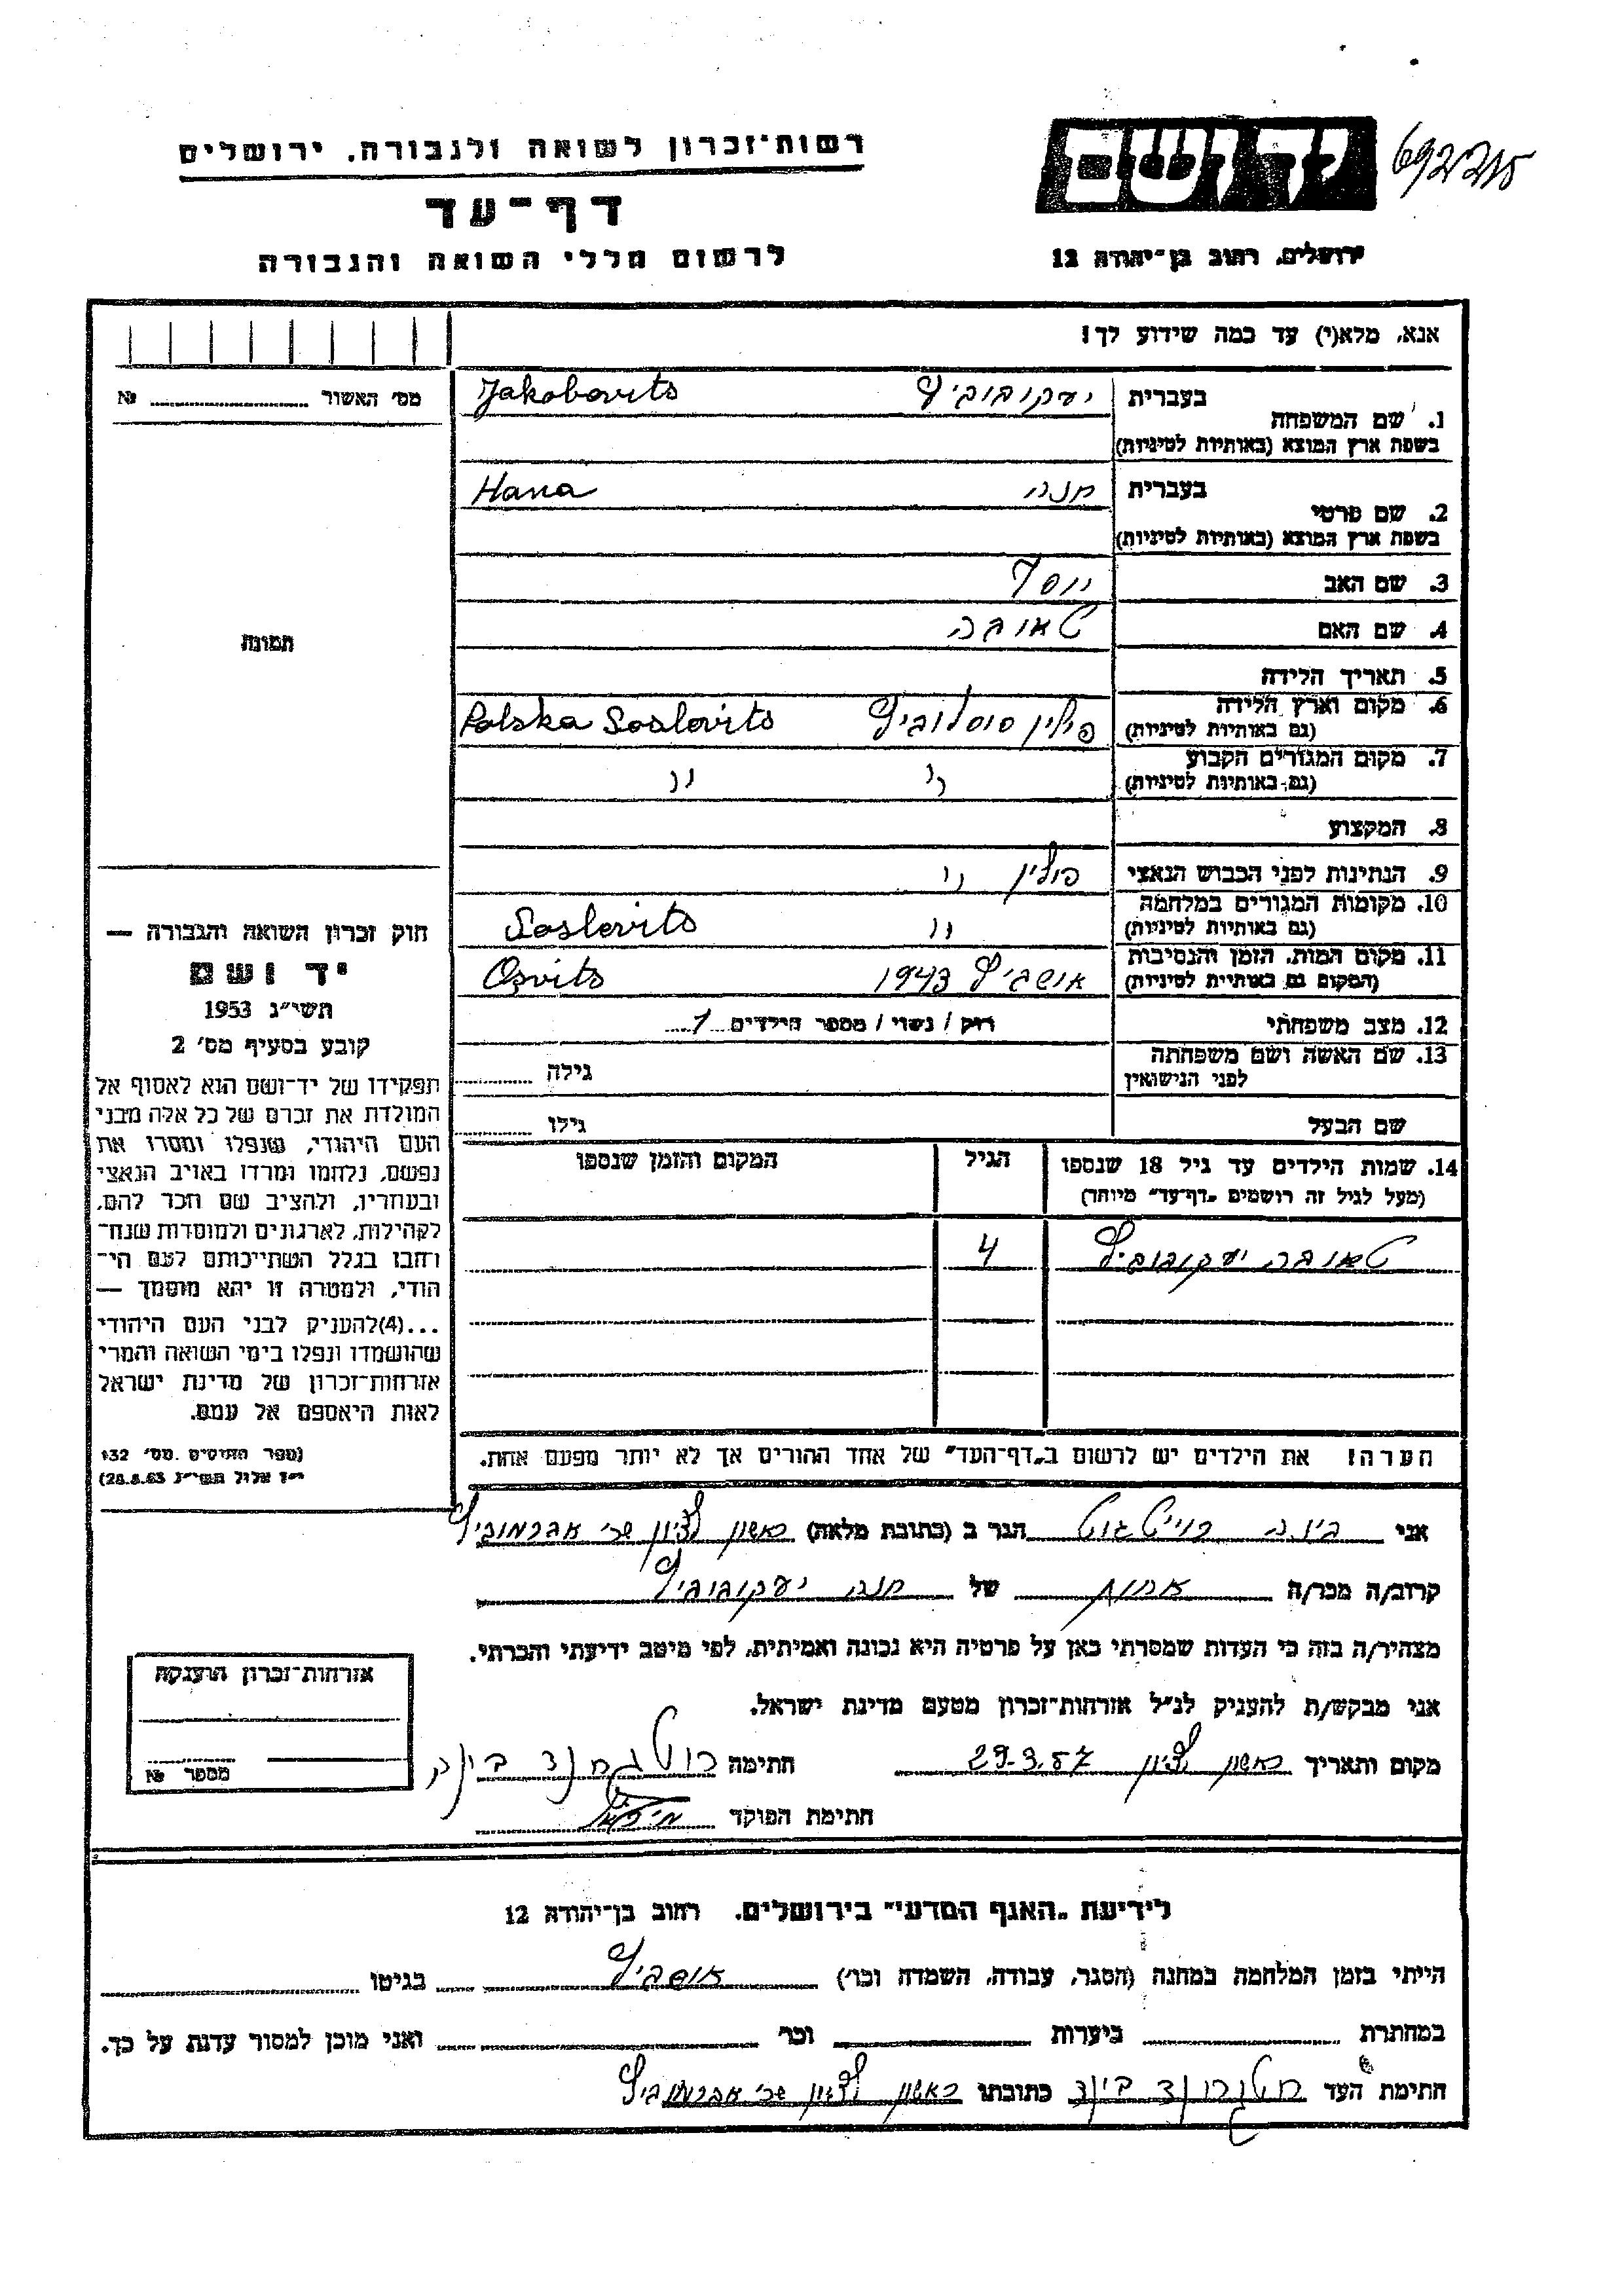 רשות־זכרון לשואה ולגבורה, ירושלים
יד ושם
דף־עד
לרשום חללי השואה והגבורה
ירושלים, רחוב בן־יהודה 12
אנא, מלא(י) עד כמה שידוע לך!
מס׳ האשור № ........
1. שם המשפחה
בעברית יעקובוביץ Jakobovits
בשפת ארץ המוצא (באותיות לטיניות)
2. שם פרטי
בעברית חנה Hana
בשפת ארץ המוצא (באותיות לטיניות)
3. שם האב יוסף
4. שם האם טאובה
תמונה
5. תאריך הלידה
6. מקום וארץ הלידה פולין סוסלוביץ Polska Soslovits
(גם באותיות לטיניות)
7. מקום המגורים הקבוע " "
(גם באותיות לטיניות)
8. המקצוע
9. הנתינות לפני הכבוש הנאצי פולין "
10. מקומות המגורים במלחמה " Soslovits
(גם באותיות לטיניות)
11. מקום המות, הזמן והנסיבות אושביץ 1943 Osvits
(המקום גם באותיות לטיניות)
12. מצב משפחתי רוק / נשוי / מספר הילדים 1
13. שם האשה ושם משפחתה גילה
לפני הנישואין
שם הבעל גילו
14. שמות הילדים עד גיל 18 שנספו הגיל המקום והזמן שנספו
(מעל לגיל זה רושמים „דף־עד" מיוחד)
טאובה יעקובוביץ 4
חוק זכרון השואה והגבורה —
יד ושם
תשי״ג 1953
קובע בסעיף מס׳ 2
תפקידו של יד־ושם הוא לאסוף אל
המולדת את זכרם של כל אלה מבני
העם היהודי, שנפלו ומסרו את
נפשם, נלחמו ומרדו באויב הנאצי
ובעוזריו, ולהציב שם וזכר להם,
לקהילות, לארגונים ולמוסדות שנח־
רחבו בגלל השתייכותם לעם הי־
הודי, ולמטרה זו יהא מוסמך —
...(4)להעניק לבני העם היהודי
שהושמדו ונפלו בימי השואה והמרי
אזרחות־זכרון של מדינת ישראל
לאות היאספם אל עמם.
(ספר החוקים מס׳ 132
י״ז אלול תשי״ג 28.8.53)
הערה! את הילדים יש לרשום ב„דף־העד" של אחד ההורים אך לא יותר מפעם אחת.
אני בינה הגר ב (כתובת מלאה) ראשון לציון שר׳ אברמוביץ
קרוב/ה מכר/ה אחות של חנה יעקובוביץ
מצהיר/ה בזה כי העדות שמסרתי כאן על פרטיה היא נכונה ואמיתית, לפי מיטב ידיעתי והכרתי.
אני מבקש/ת להעניק לנ״ל אזרחות־זכרון מטעם מדינת ישראל.
מקום ותאריך ראשון לציון 29.3.57 חתימה
חתימת הפוקד
אזרחות־זכרון הוענקה
מספר №
לידיעת „האגף המדעי" בירושלים, רחוב בן־יהודה 12
הייתי בזמן המלחמה במחנה (הסגר, עבודה, השמדה וכו׳) אושביץ בגיטו
במחתרת ביערות וכו׳ ואני מוכן למסור עדות על כך.
חתימת העד כתובתו ראשון לציון שר׳ אברמוביץ